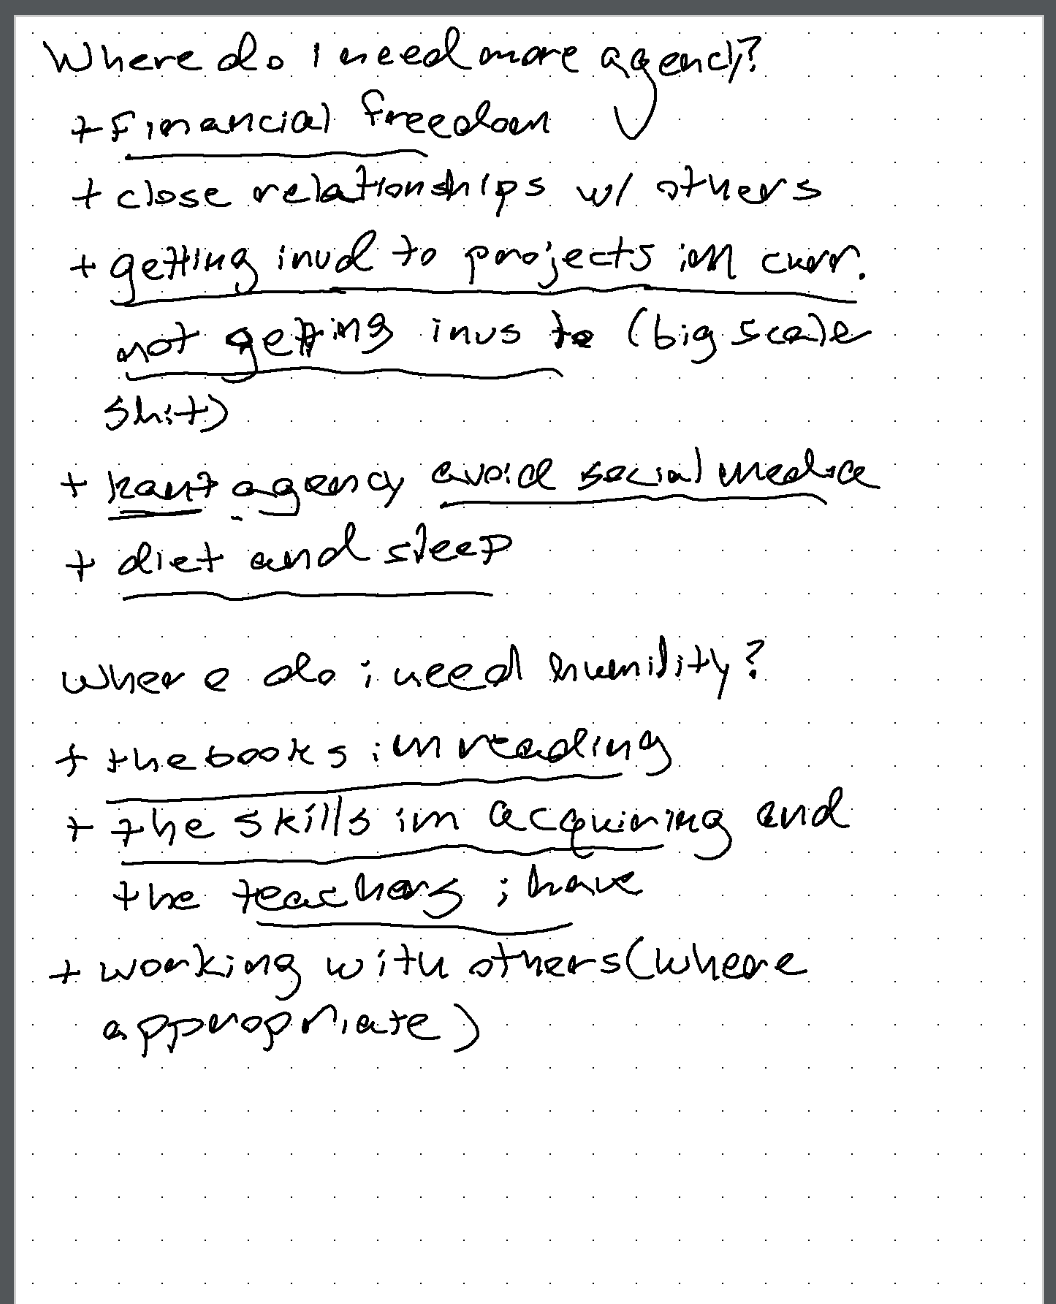 Where do I need more agency?
+ Financial freedom
+ close relationships w/ others
+ getting invd to projects im curr.
not getting invs to (big scale
shit)
+ kant agency avoid social media
+ diet and sleep
where do i need humility?
+ the books im reading
+ the skills im acquiring and
the teachers i have
+ working with others (where
appropriate)